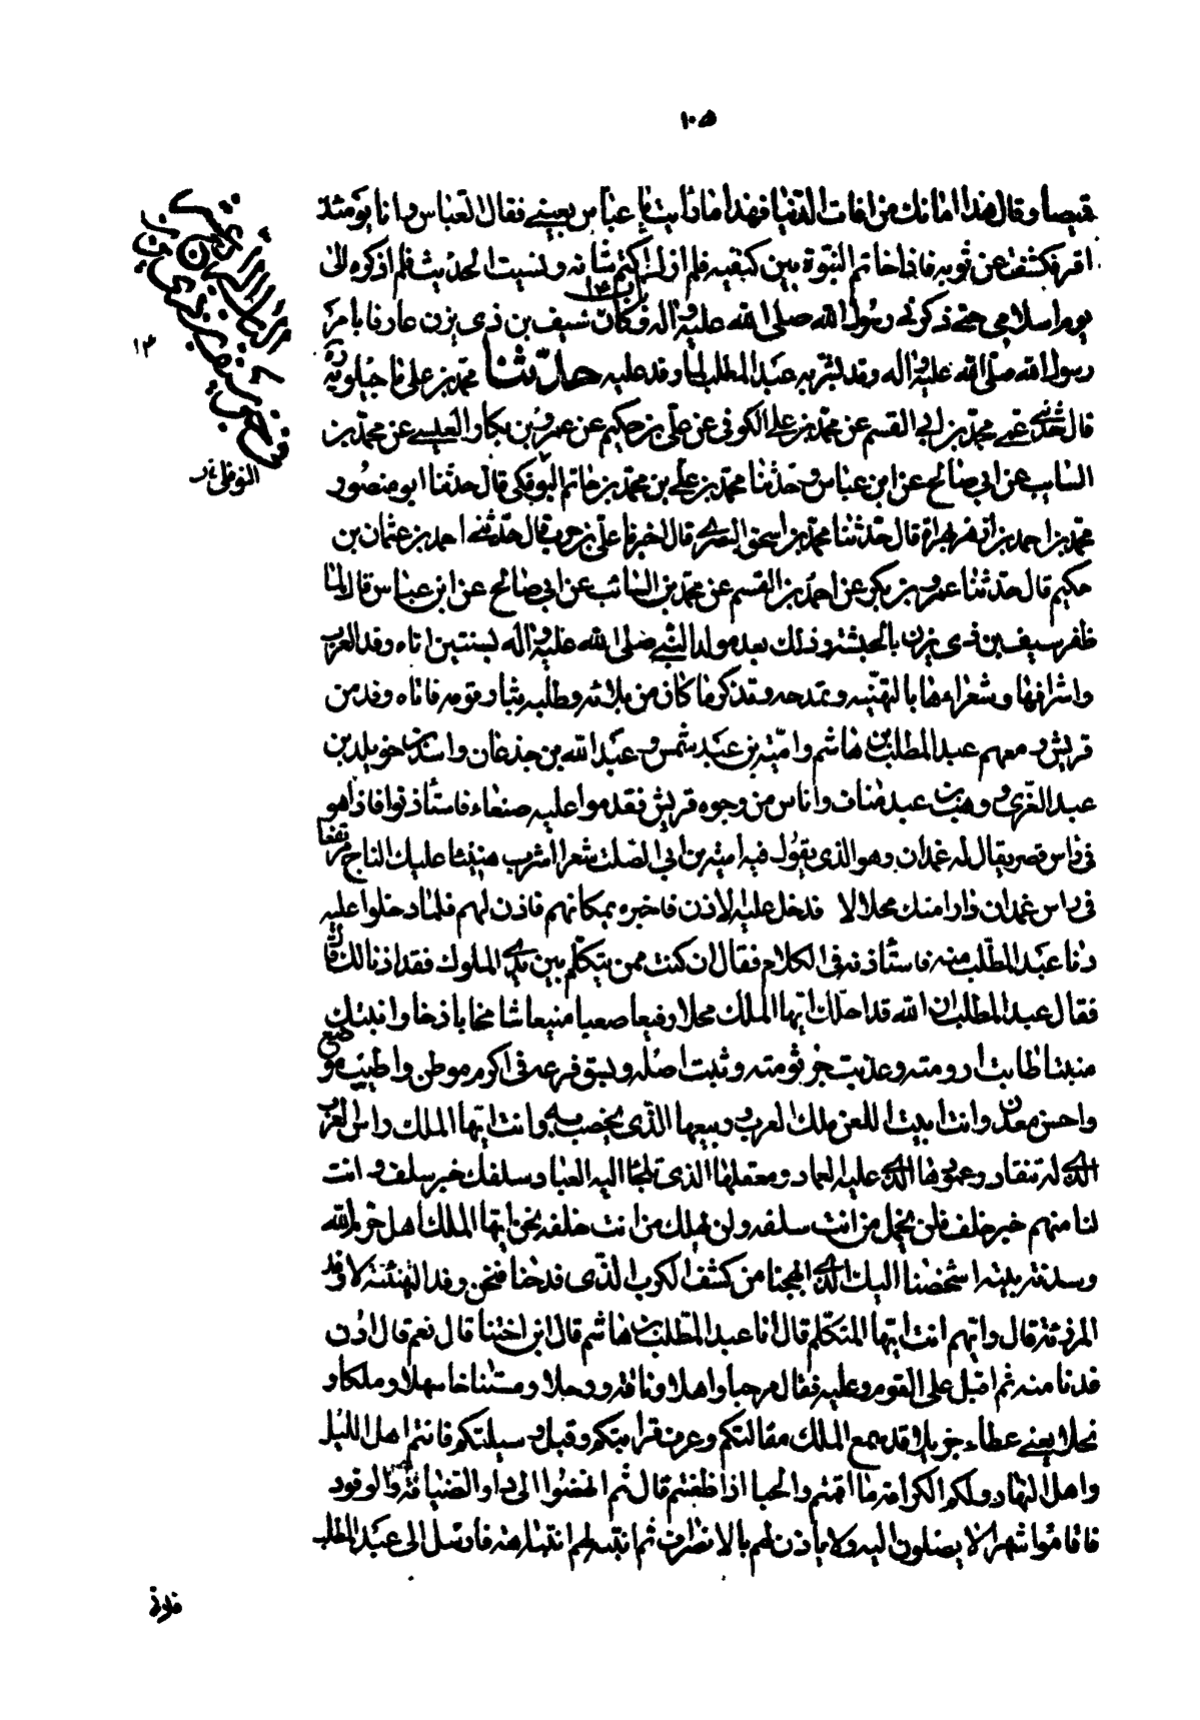 ١٠٥
قميصا وقال هذا امانك من افات الدنيا فهذا ما رأيت يا عباس بعينى فقال العباس وانا يومئذ
اقرء فكشفت عن ثوبه فاذا خاتم النبوة بين كتفيه فلم ازل اكتم شانه ونسيت الحديث فلم اذكره الى
يوم اسلامى حتى ذكرنى رسول الله صلى الله عليه واله وكان سيف بن ذى يزن عارفا بامر
رسول الله صلى الله عليه واله وقد بشر به عبد المطلب لما وفد عليه حدثنا محمد بن على ماجيلويه ره
قال حدثنى عمى محمد بن ابى القسم عن محمد بن على الكوفى عن على بن حكيم عن عمرو بن بكار العبسى عن محمد بن
السايب عن ابى صالح عن ابن عباس وحدثنا محمد بن على بن محمد بن حاتم البوفكى قال حدثنا ابو منصور
محمد بن احمد بن ازهر بهراة قال حدثنا محمد بن اسحق البصرى قال اخبرنا على بن حرب قال حدثنى احمد بن عثمان بن
حكيم قال حدثنا عمرو بن بكر عن احمد بن القسم عن محمد بن السائب عن ابى صالح عن ابن عباس قال لما
ظفر سيف بن ذى يزن بالحبشة وذلك بعد مولد النبى صلى الله عليه واله بسنتين اتاه وفد العرب
واشرافها وشعراءها بالتهنية وتمدحه وتذكر ما كان من بلائه وطلبه بثار قومه فاتاه وفد من
قريش ومعهم عبد المطلب بن هاشم وامية بن عبد شمس وعبد الله بن جذعان واسد بن خويلد بن
عبد العزى ووهب بن عبد مناف واناس من وجوه قريش فقدموا عليه صنعاء فاستأذنوا فاذا هو
فى راس قصر يقال له غمدان وهو الذى يقول فيه امية بن ابى الصلت شعر اشرب هنيئا عليك التاج مرتفعا
فى راس غمدان دارا منك محلالا فدخل عليه الاذن فاخبره بمكانهم فاذن لهم فلما دخلوا عليه
دنا عبد المطلب منه فاستأذنه فى الكلام فقال ان كنت ممن يتكلم بين يدى الملوك فقد اذنا لك قال
فقال عبد المطلب ان الله قد احلك ايها الملك محلا رفيعا صعبا منيعا شامخا باذخا وانبتك
منبتا طابت ارومته وعذبت جرثومته وثبت اصله وبسق فرعه فى اكرم موطن واطيب موضع
واحسن معدن وانت ابيت اللعن ملك العرب وربيعها الذى يخصب به وانت ايها الملك راس العرب
الذى له تنقاد وعمودها الذى عليه العماد ومعقلها الذى تلجأ اليه العباد سلفك خير سلف وانت
لنا منهم خير خلف فلن يخمل من انت سلفه ولن يهلك من انت خلفه نحن ايها الملك اهل حرم الله
وسدنة بيته اشخصنا اليك الذى ابهجنا من كشف الكرب الذى فدحنا فنحن وفد التهنئة لا وفد
المرزئة قال وايهم انت ايها المتكلم قال انا عبد المطلب بن هاشم قال ابن اختنا قال نعم قال ادن
فدنا منه ثم اقبل على القوم وعليه فقال مرحبا واهلا وناقة ورحلا ومستناخا سهلا وملكا و
نحلا يعنى عطاء جزيلا قد سمع الملك مقالتكم وعرف قرابتكم وقبل وسيلتكم فانتم اهل الليل
واهل النهار ولكم الكرامة ما اقمتم والحبا اذا ظعنتم قال ثم انهضوا الى دار الضيافة والوفود
فاقاموا شهرا لا يصلون اليه ولا ياذن لهم بالانصراف ثم انتبه لهم انتباهة فارسل الى عبد المطلب
١٣
النوفلى